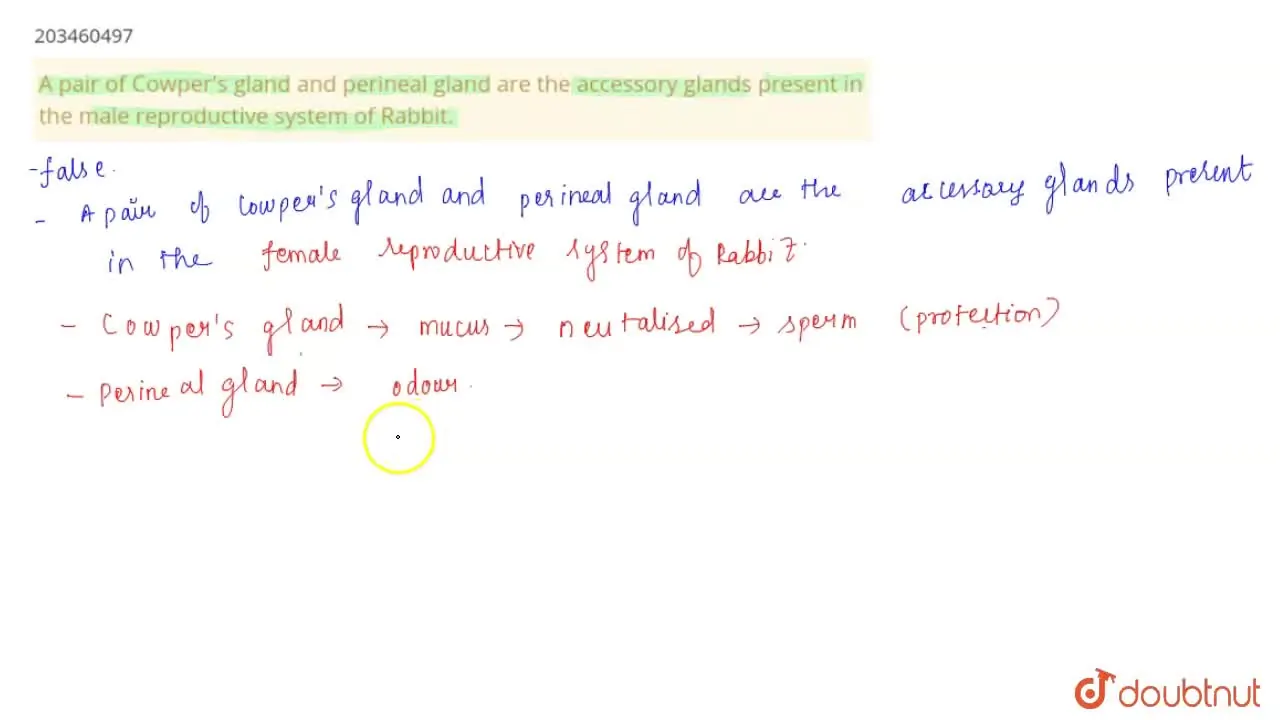 203460497
A pair of Cowper's gland and perineal gland are the accessory glands present in
the male reproductive system of Rabbit.
-false.
- A pair of Cowper's gland and perineal gland are the accessory glands present
in the female reproductive system of Rabbit.
- Cowper's gland → mucus → neutalised → sperm (protection)
- Perineal gland → odour.
doubtnut